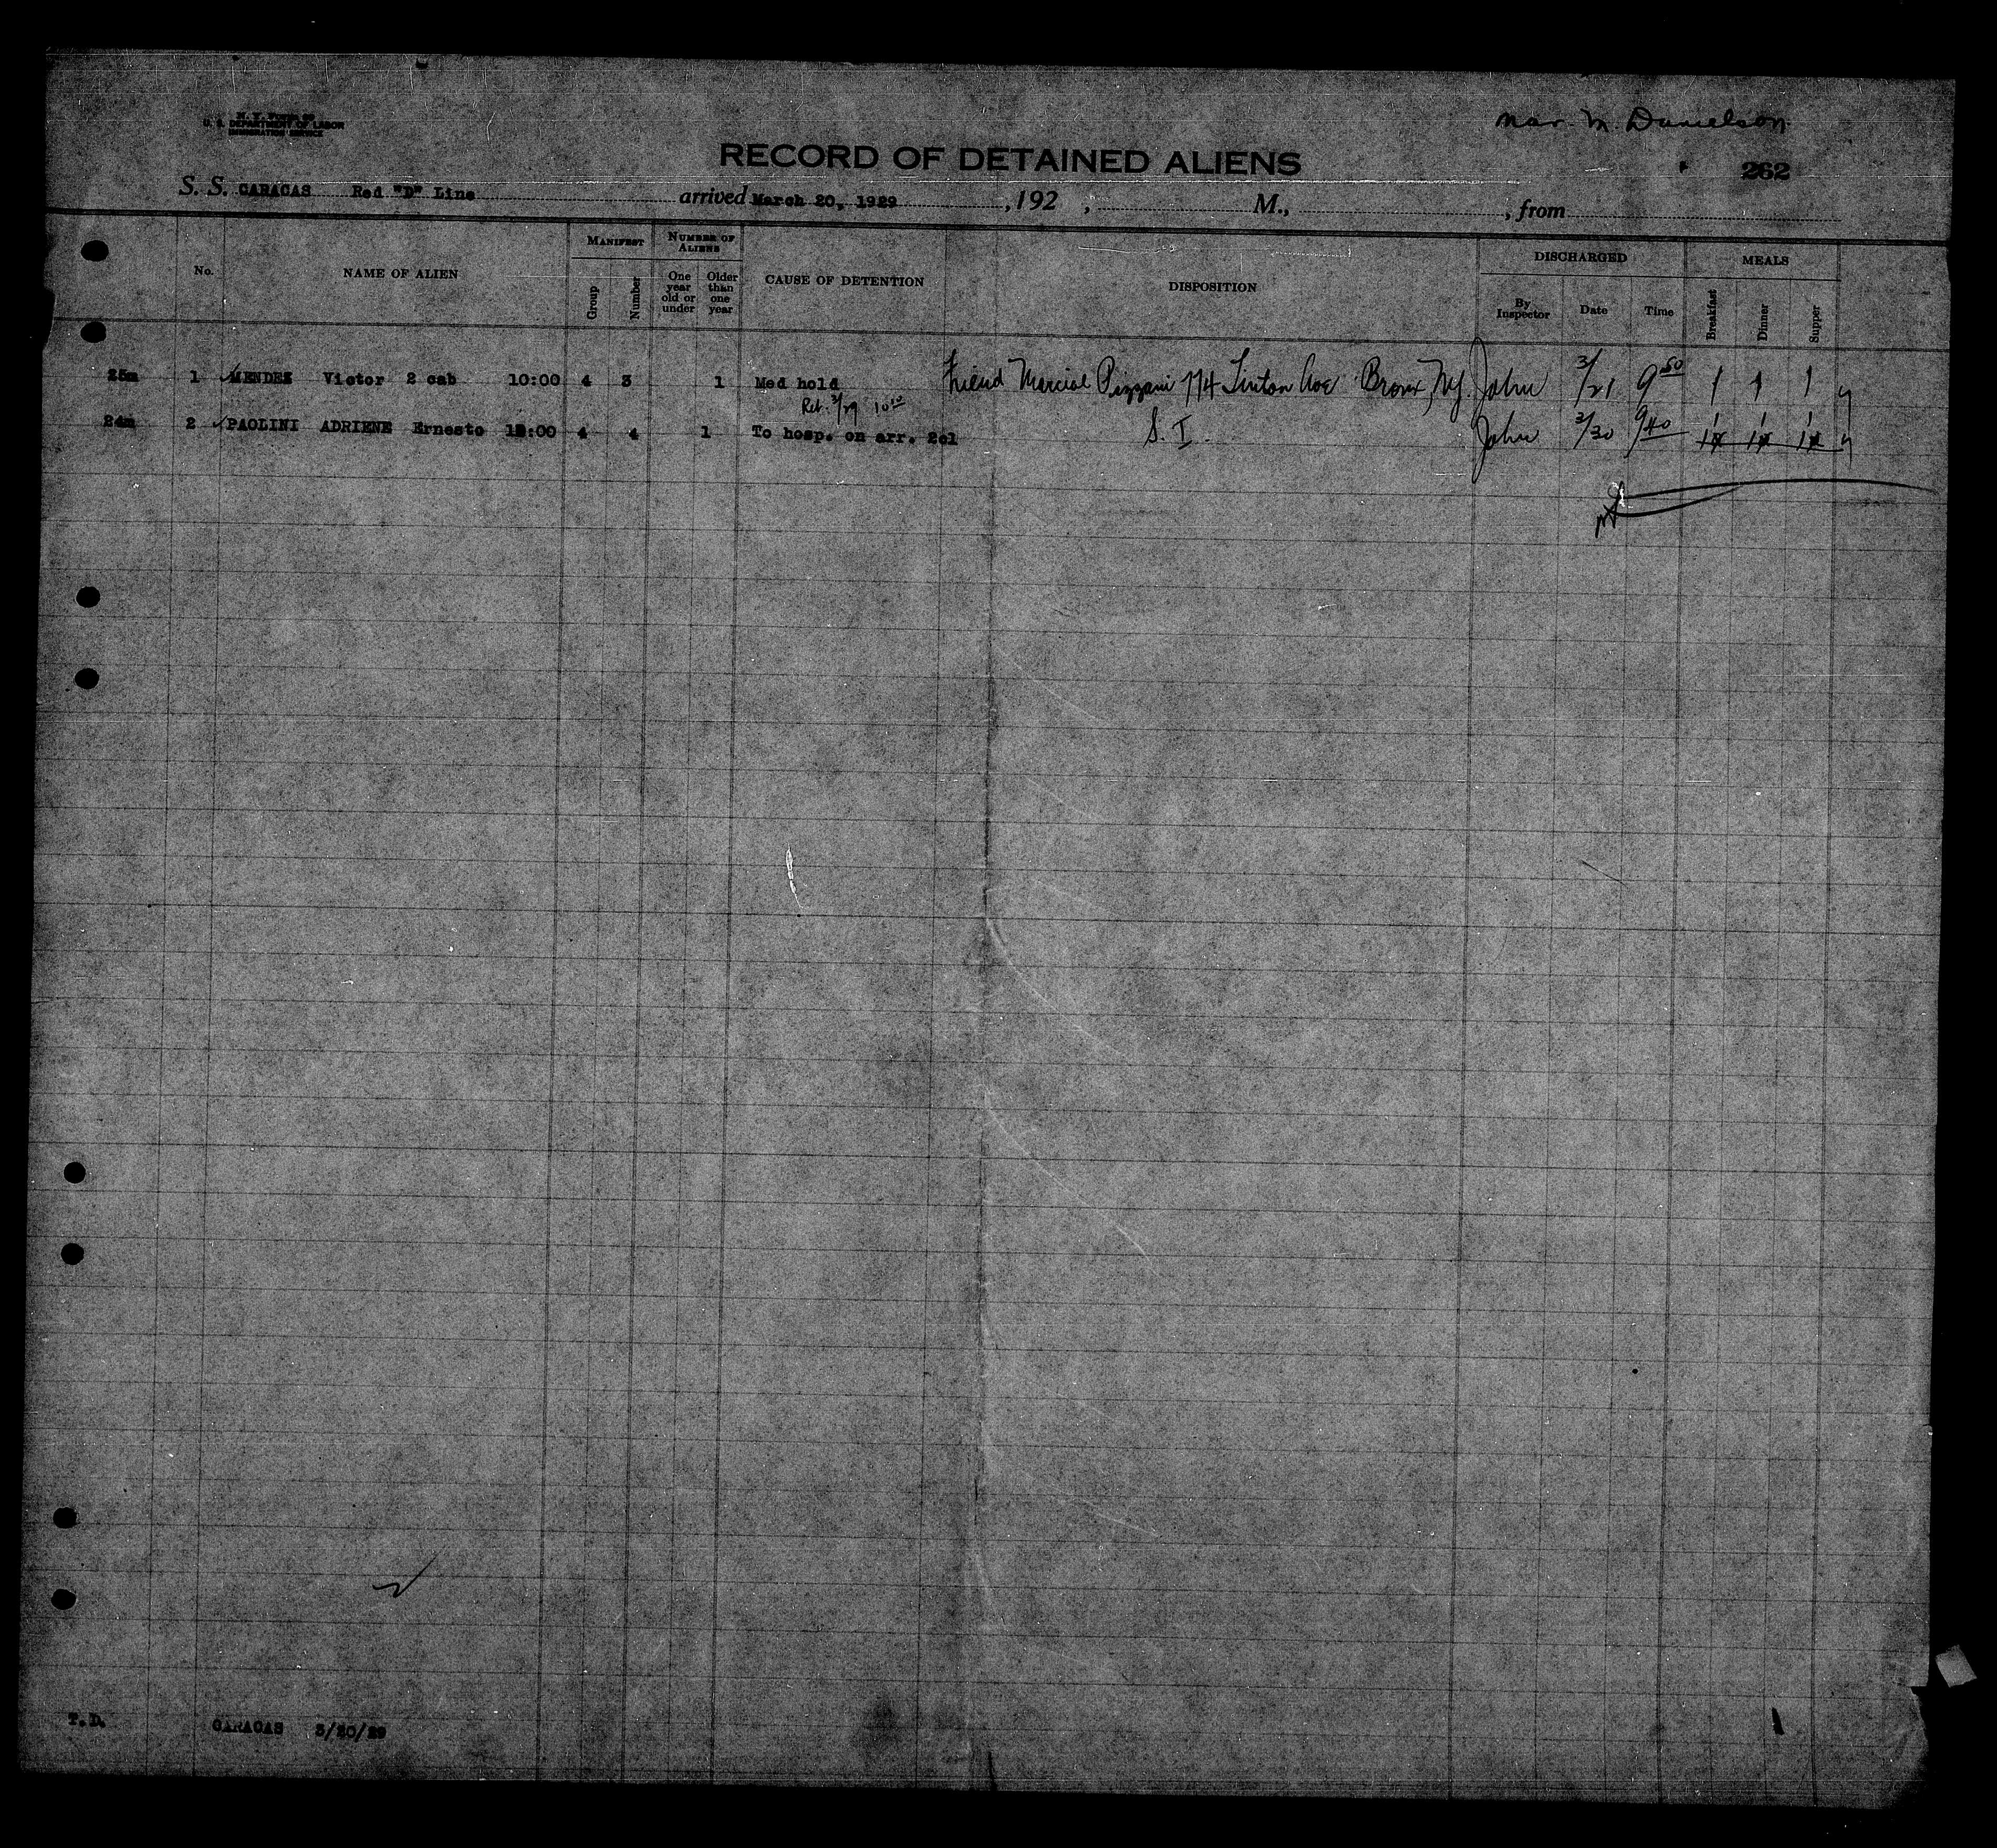 U. S. DEPARTMENT OF LABOR
IMMIGRATION SERVICE
M. Danielson
RECORD OF DETAINED ALIENS
262
S. S. CARACAS Red "D" Line arrived March 20, 1929 , 192 , M., , from
No. NAME OF ALIEN MANIFEST Group Number NUMBER OF ALIENS One year old or under Older than one year CAUSE OF DETENTION DISPOSITION DISCHARGED By Inspector Date Time MEALS Breakfast Dinner Supper
25m 1 MENDEZ Victor 2 cab 10:00 4 3 1 Med hold Friend Marcial Pizzani 774 Tinton Ave Bronx, NY. John 3/21 9 50 1 1 1
Ret. 3/29 10 10
24m 2 PAOLINI ADRIENE Ernesto 4 4 1 To hosp. on arr. 2cl S. I. John 3/30 9 40
T.D. CARACAS 3/20/29